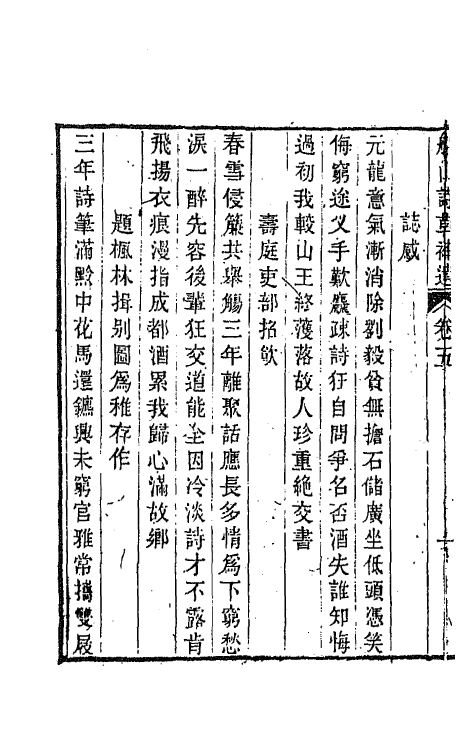 船山詩草補遺 卷五
誌感
元龍意氣漸消除劉毅貧無擔石儲廣坐低頭憑笑
侮窮途叉手歎麤疎詩狂自問爭名否酒失誰知悔
過初我較山王終濩落故人珍重絶交書
壽庭吏部招飲
春雪侵簾共舉觴三年離聚話應長多情爲下窮愁
淚一醉先容後輩狂交道能全因冷淡詩才不露肯
飛揚衣痕漫指成都酒累我歸心滿故鄉
題楓林揖别圖爲稚存作
三年詩筆滿黔中花馬還鑣興未窮官雅常攜雙屐